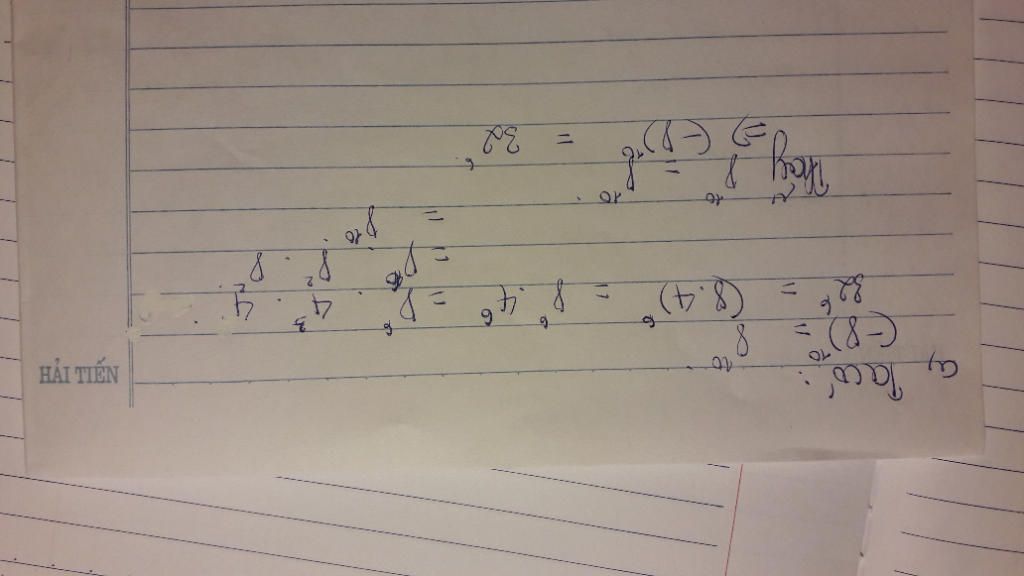 a, Ta có:
(-8)¹⁰ = 8¹⁰.
32⁶ = (8.4)⁶ = 8⁶.4⁶ = 8⁶.4³.4.
= 8⁶.8².8².
= 8¹⁰.
Thấy 8¹⁰ = 8¹⁰.
=> (-8)¹⁰ = 32⁶
HẢI TIẾN